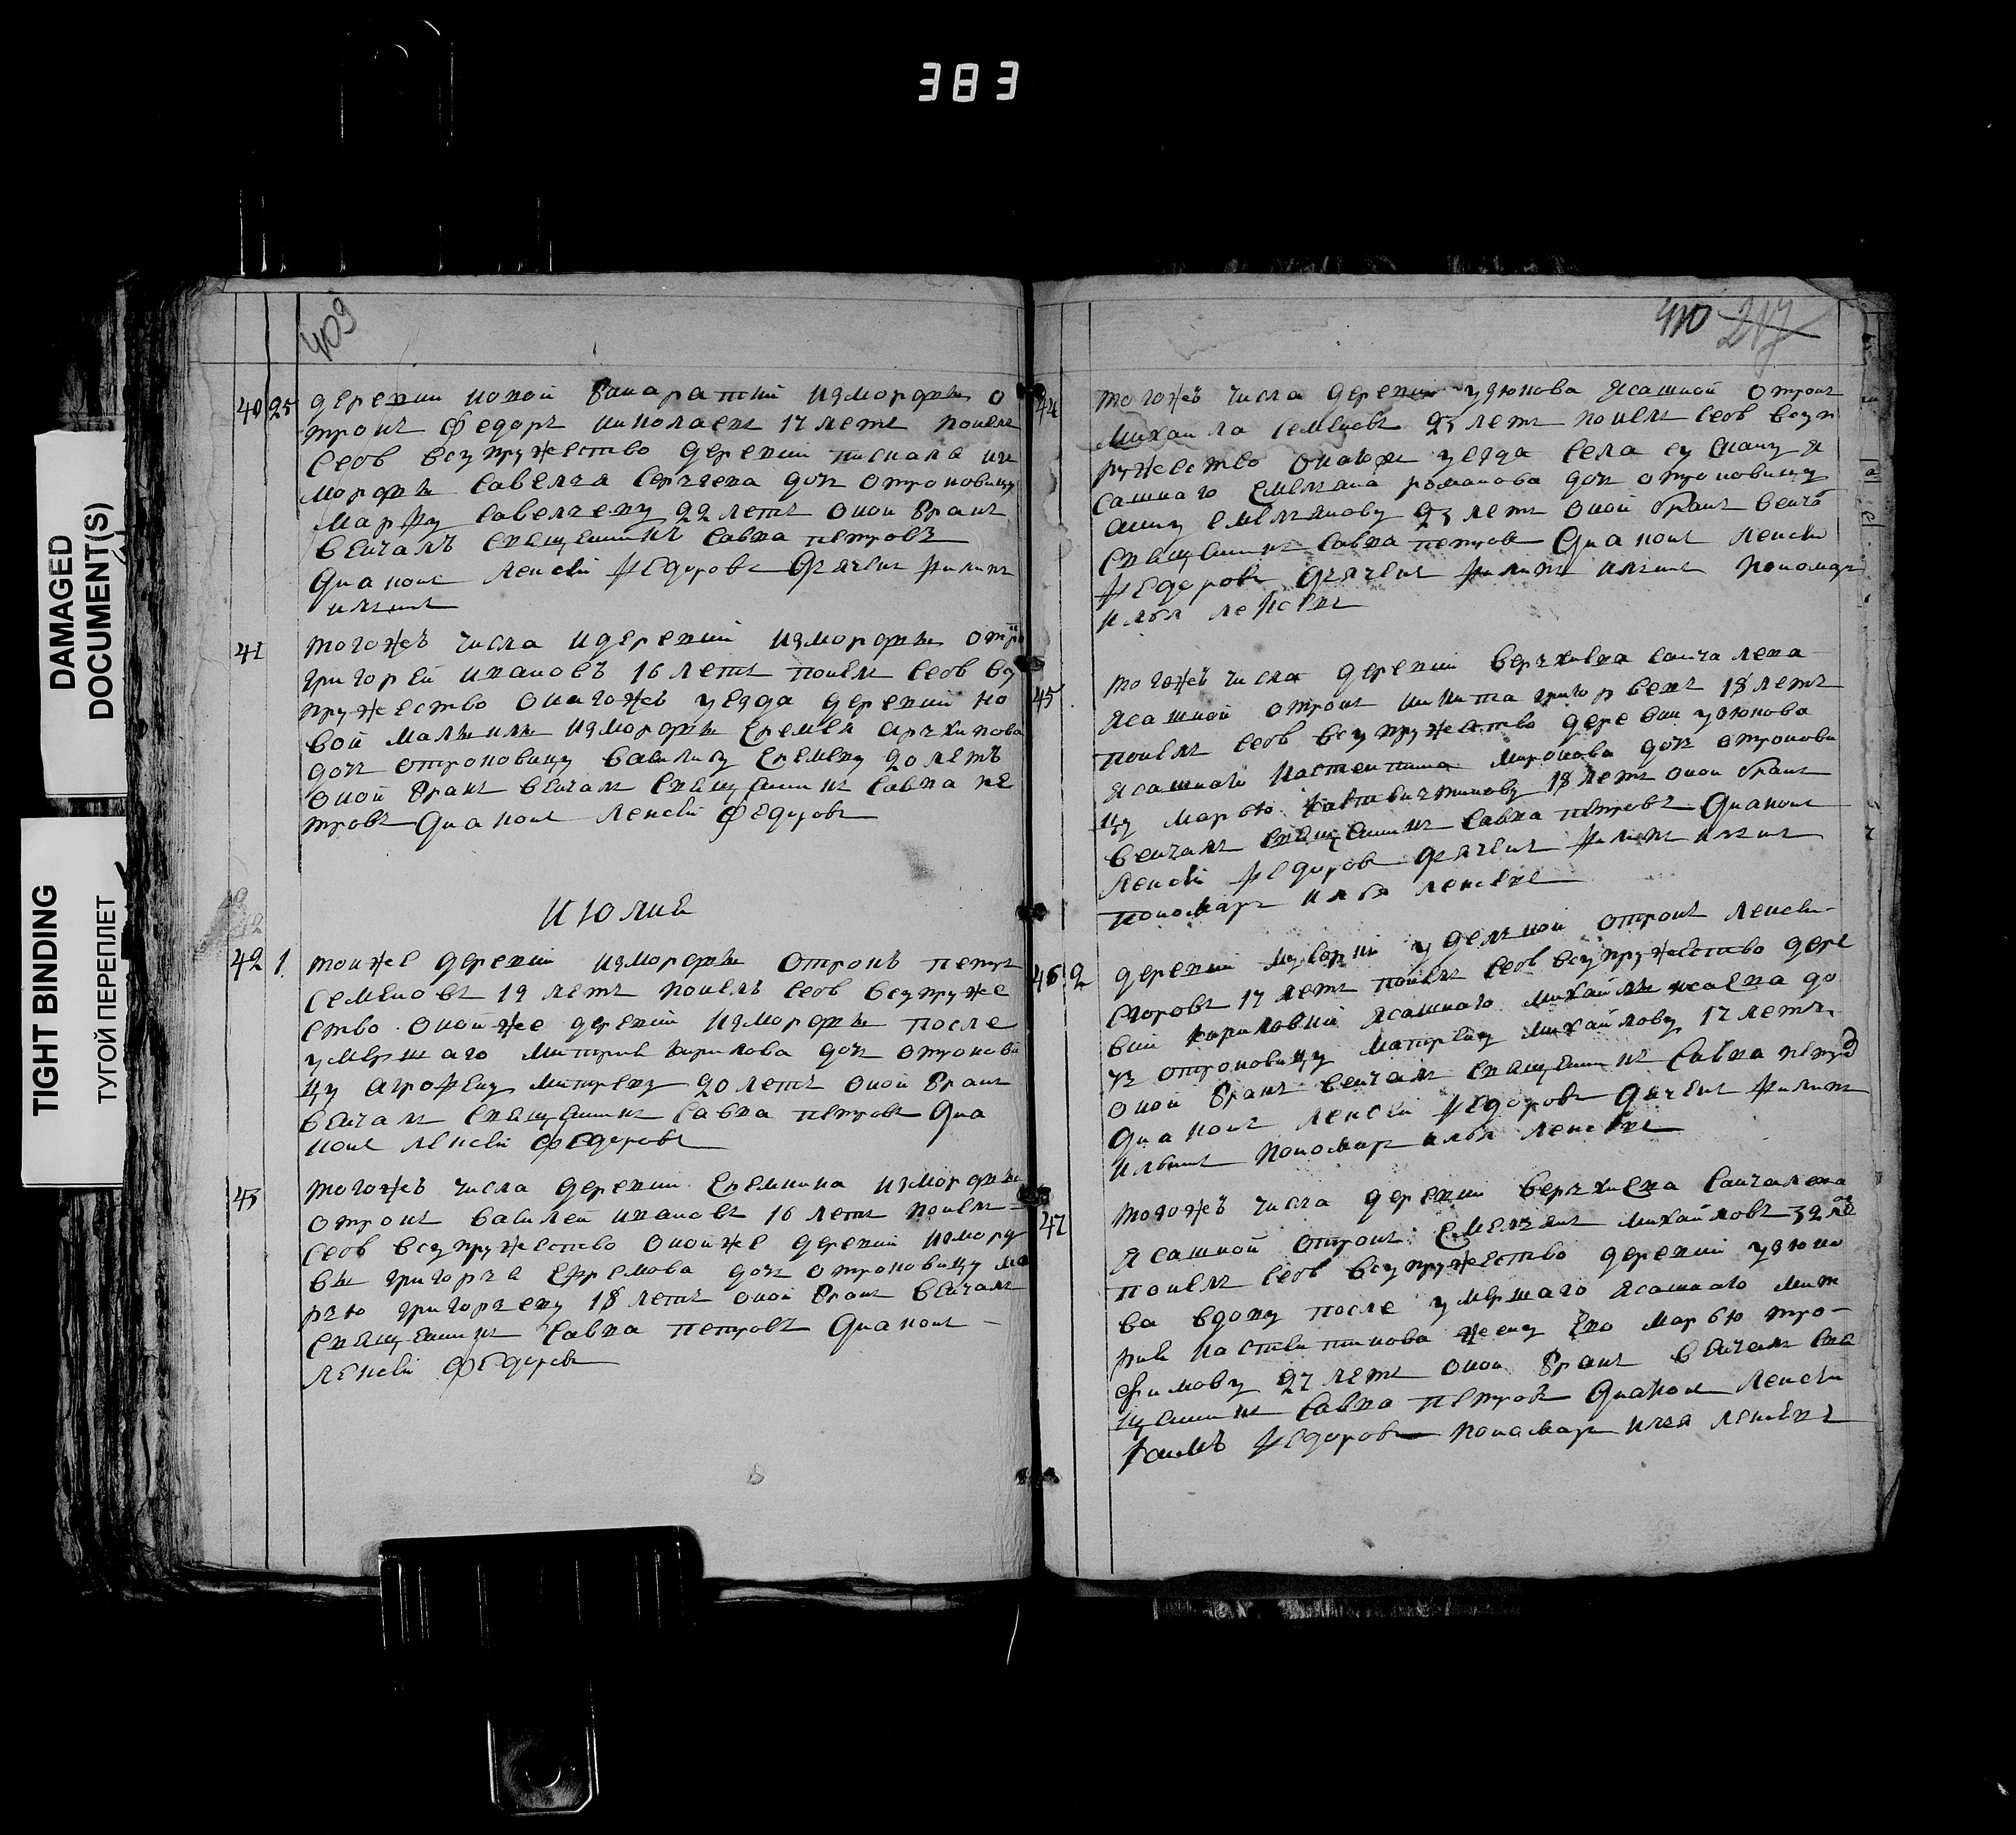 383
DAMAGED
DOCUMENT(S)
TIGHT BINDING
ТУГОЙ ПЕРЕПЛЕТ
409
40 25 деревни новой измордвы о
трокъ Федоръ николаевъ 17 летъ понелъ
себѣ всупружество деревни из
мордвы савелья сергѣева дочь отроковицу
марфу савельеву 22 летъ оной бракъ
венчалъ священникъ савва петровъ
диаконъ алексѣй федоровъ дьячекъ филипъ
ильинъ
41 тогожъ числа идеревни измордвы отро
григорей ивановъ 16 летъ понелъ себѣ всу
пружество оногожъ уезда деревни но
вой измордвы еремея архипова
дочь отроковицу василису еремеву 20 летъ
оной бракъ венчалъ священникъ савва пе
тровъ диаконъ алексѣй Федоровъ
июлий
42 1 тойже деревни измордвы отрокъ петръ
семеновъ 19 летъ понелъ себѣ всупруже
ство онойже деревни измордвы после
умершаго митрия кирилова дочь отрокови
цу агрофену митреву 20 летъ оной бракъ
венчалъ священникъ савва петровъ диа
конъ алексѣй Федоровъ
43 тогожъ числа деревни еремкина измордвы
отрокъ василей ивановъ 16 летъ понелъ
себѣ всупружество онойже деревни изморд
вы григорья ефремова дочь отроковицу ма
рью григорьеву 18 летъ оной бракъ венчалъ
священникъ савва петровъ диаконъ
алексѣй Федоровъ
410 217
44 тогожъ числа деревни узюкова ясашной отрокъ
михаила семеновъ 23 летъ понелъ себѣ всуп
ружество уезда села сускану я
сашнаго емельяна романова дочь отроковицу
анну емельянову 23 летъ оной бракъ венча
священникъ савва петровъ диаконъ алексѣй
федоровъ дьячекъ филипъ ильинъ пономарь
илья алексѣевъ
45 тогожъ числа деревни верхнева санчалева
ясашной отрокъ никита григорьевъ 18 летъ
понелъ себѣ всупружество деревни узюкова
ясашнаго костентина миронова дочь отрокови
цу марью 18 летъ оной бракъ
венчалъ священникъ савва петровъ диаконъ
алексѣй федоровъ дьячекъ филипъ ильинъ
пономарь илья алексѣевъ
46 2 деревни удельной отрокъ алексѣй
егоровъ 17 летъ понелъ себѣ всупружество дере
вни кириловки ясашнаго михайлы исаева до
чь отроковицу матрену михайлову 17 летъ
оной бракъ венчалъ священникъ савва петро
диаконъ алексѣй федоровъ дьячекъ филипъ
ильинъ пономарь илья алексѣевъ
47 тогожъ числа деревни верхнева санчалева
ясашной отрокъ емельянъ михайловъ 32 ле
понелъ себѣ всупружество деревни узюко
ва вдову после умершаго ясашнаго мит
рия костентинова жену ево марью тро
фимову 27 летъ оной бракъ венчалъ свя
щенникъ савва петровъ диаконъ алексѣй
федоровъ пономарь илья алексѣевъ